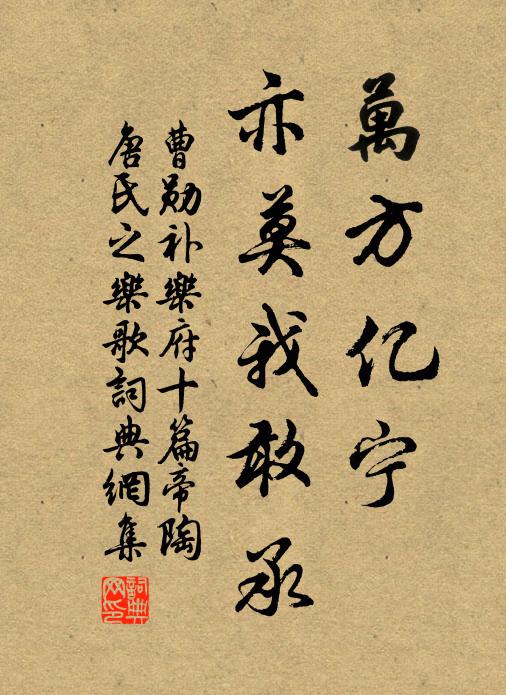 萬方亿宁
亦莫我敢承
曹勋补樂府十篇帝陶
唐氏之樂歌詞典網集
詞典网印